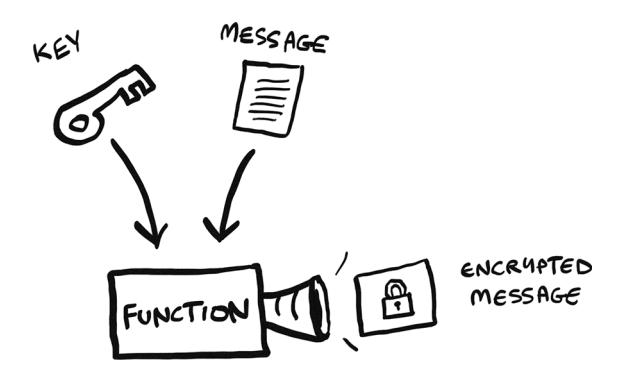 KEY
MESSAGE
FUNCTION
ENCRYPTED
MESSAGE